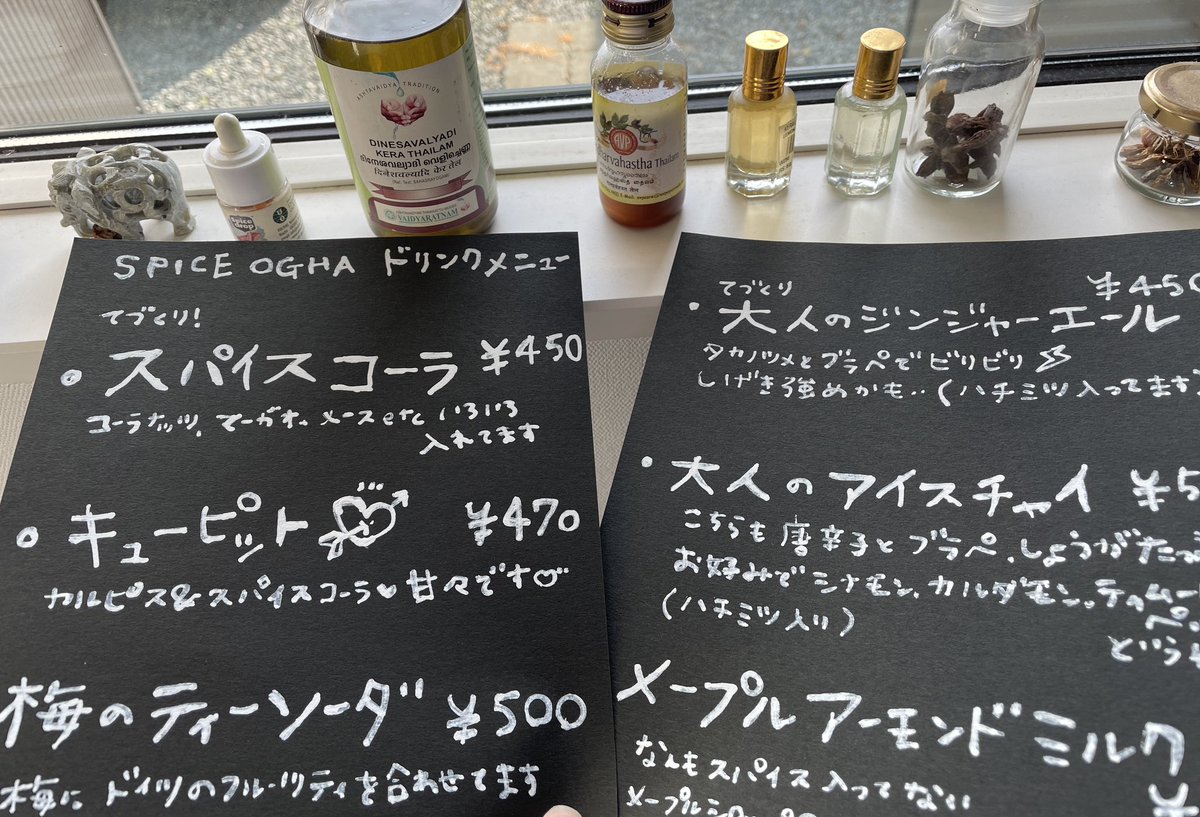 ASHTAVAIDYA TRADITION
DINESAVALYADI
KERA THAILAM
ദിനേശവല്യാദി കേര തൈലം
VAIDYARATNAM
Spice
drop
AVP
arvahastha Thailam
SPICE OGHA ドリンクメニュー
てづくり!
・スパイスコーラ ¥450
コーラナッツ、マーガオ、メースetc いろいろ
入れてます
・キューピット ¥470
カルピス&スパイスコーラ♥甘々です
梅のティーソーダ ¥500
梅に ドイツのフルーツティを合わせてます
てづくり
・大人のジンジャーエール ¥450
タカノツメとブラペでビリビリ
しげき強めかも‥(ハチミツ入ってます
・大人のアイスチャイ ¥5
こちらも唐辛子とブラペ、しょうがたっ
お好みでシナモン、カルダモン、ティムー
ペ。
(ハチミツ入り)
という
メープルアーモンドミルク
なんもスパイス入ってない
¥